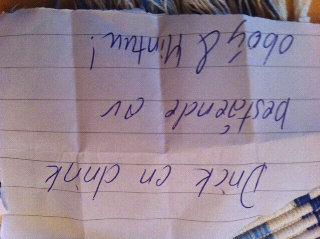 Drick en drink
bestående av
oboy & Mintuu!